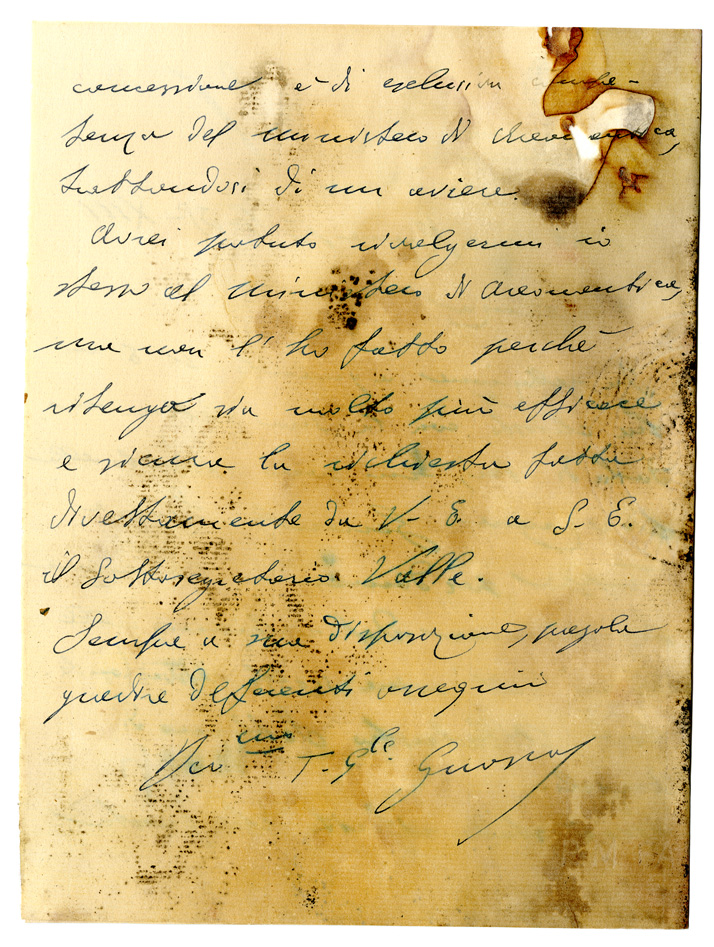 concessione è di esclusiva compe-
tenza del ministero di Aeronautica,
trattandosi di un aviere.
Avrei potuto rivolgermi io
stesso al Ministero di Aeronautica,
ma non l'ho fatto perchè
ritengo sia molto più efficace
e sicura la richiesta fatta
direttamente da V. E. a S. E.
il Sottosegretario Valle.
Sempre a sua disposizione, pregola
gradire deferenti ossequii
Dev mo T. Gle